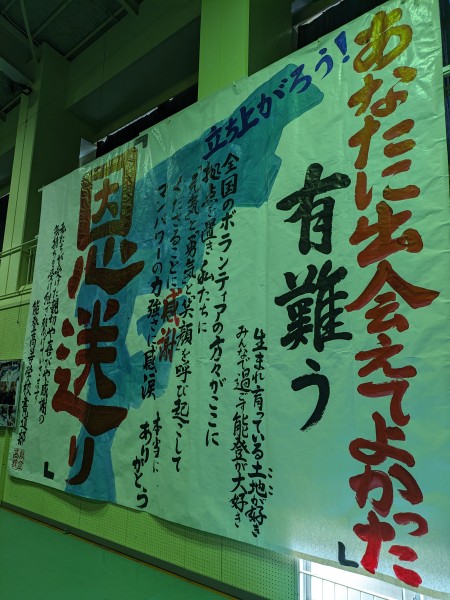 あなたに出会えてよかった
有難う
立ち上がろう!
生まれ育っている土地が好き
みんなで過ごす能登が大好き
全国のボランティアの方々がここに
拠点を置き 私たちに
元気と勇気と笑顔を呼び起こして
くださることに感謝
マンパワーの力強さに感涙 本当に
ありがとう
恩送り
私たちが受けた親切や喜びや感謝の
能登高等学校書道部